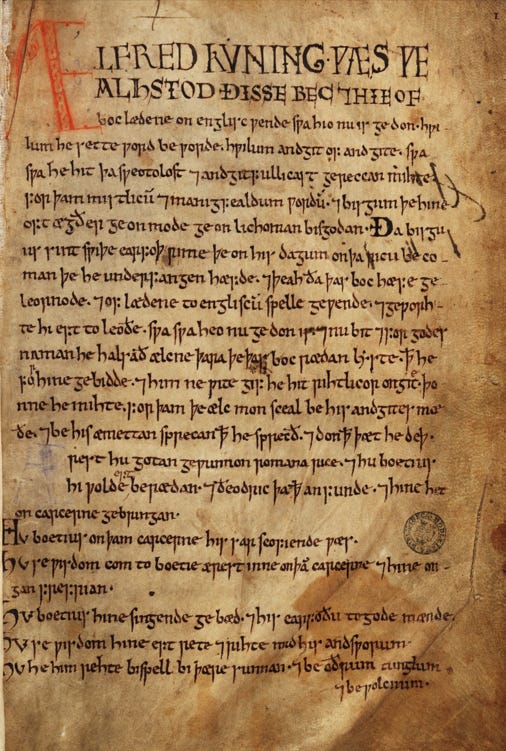 ÆLFRED KUNING · ǷÆS ǷE
ALHSTOD ÐISSE BEC ⁊ HIE OF
boc lædene on englisc ƿende sƿa hio nu is ge don · hƿi-
lum he sette ƿord be ƿorde · hƿilum andgit of andgite · sƿa
sƿa he hit þa sƿeotolost ⁊ andgitfullicast gereccan mihte
for þam mistlicū ⁊ manigfealdum ƿordū · ⁊ bisgum þe hine
oft ægðer ge on mode ge on lichoman bisgodan · Ða bisgu
us sint sƿiþe earfoþ rime þe on his dagum on þa ricu be co-
man þe he underfangen hæfde · ⁊ þeah ða þas boc hæfde ge-
leornode · ⁊ of lædene to engliscū spelle geƿende · ⁊ geƿorh-
te hi eft to leoðe · sƿa sƿa heo nu ge don is · ⁊ nu bit ⁊ for godes
naman he halsað ælcne þara þe þas boc rædan lyste · ꝥ he
for hine gebidde · ⁊ him ne ƿite gif he hit rihtlicor ongite þo
nne he mihte · for þam þe ælc mon sceal be his andgites mæ
ðe · ⁊ be his æmettan sprecan ꝥ he sprecð · ⁊ don ꝥ þæt he deþ ·
rest hu gotan geƿunnon romana rice · ⁊ hu boetius
hi ƿolde berædan · ⁊ ðeodric þæt anfunde · ⁊ hine het
on carcerne gebringan ·
Hu boetius on þam carcerne his sar seofiende ƿæs ·
Hu se ƿisdom com to boetie ærest inne on þā carcerne ⁊ hine on-
gan frefrian ·
Hu boetius hine singende gebæd · ⁊ his earfoðu to gode mænde ·
Hu se ƿisdom hine eft rete ⁊ rihte mid his andsƿorum
Hu he him rehte bispell bi þære sunnan · ⁊ be oðrum tunglum
⁊ be ƿolcnum ·